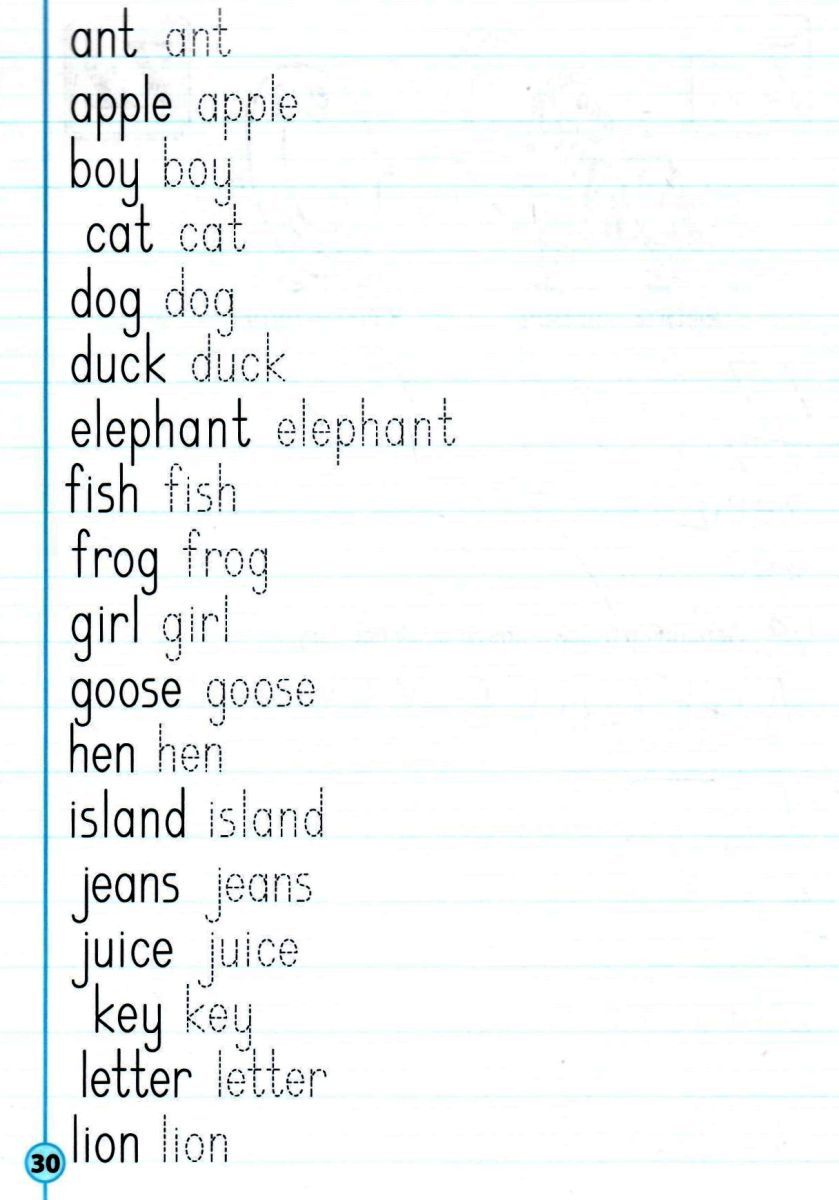 ant ant
apple apple
boy boy
cat cat
dog dog
duck duck
elephant elephant
fish fish
frog frog
girl girl
goose goose
hen hen
island island
jeans jeans
juice juice
key key
letter letter
lion lion
30